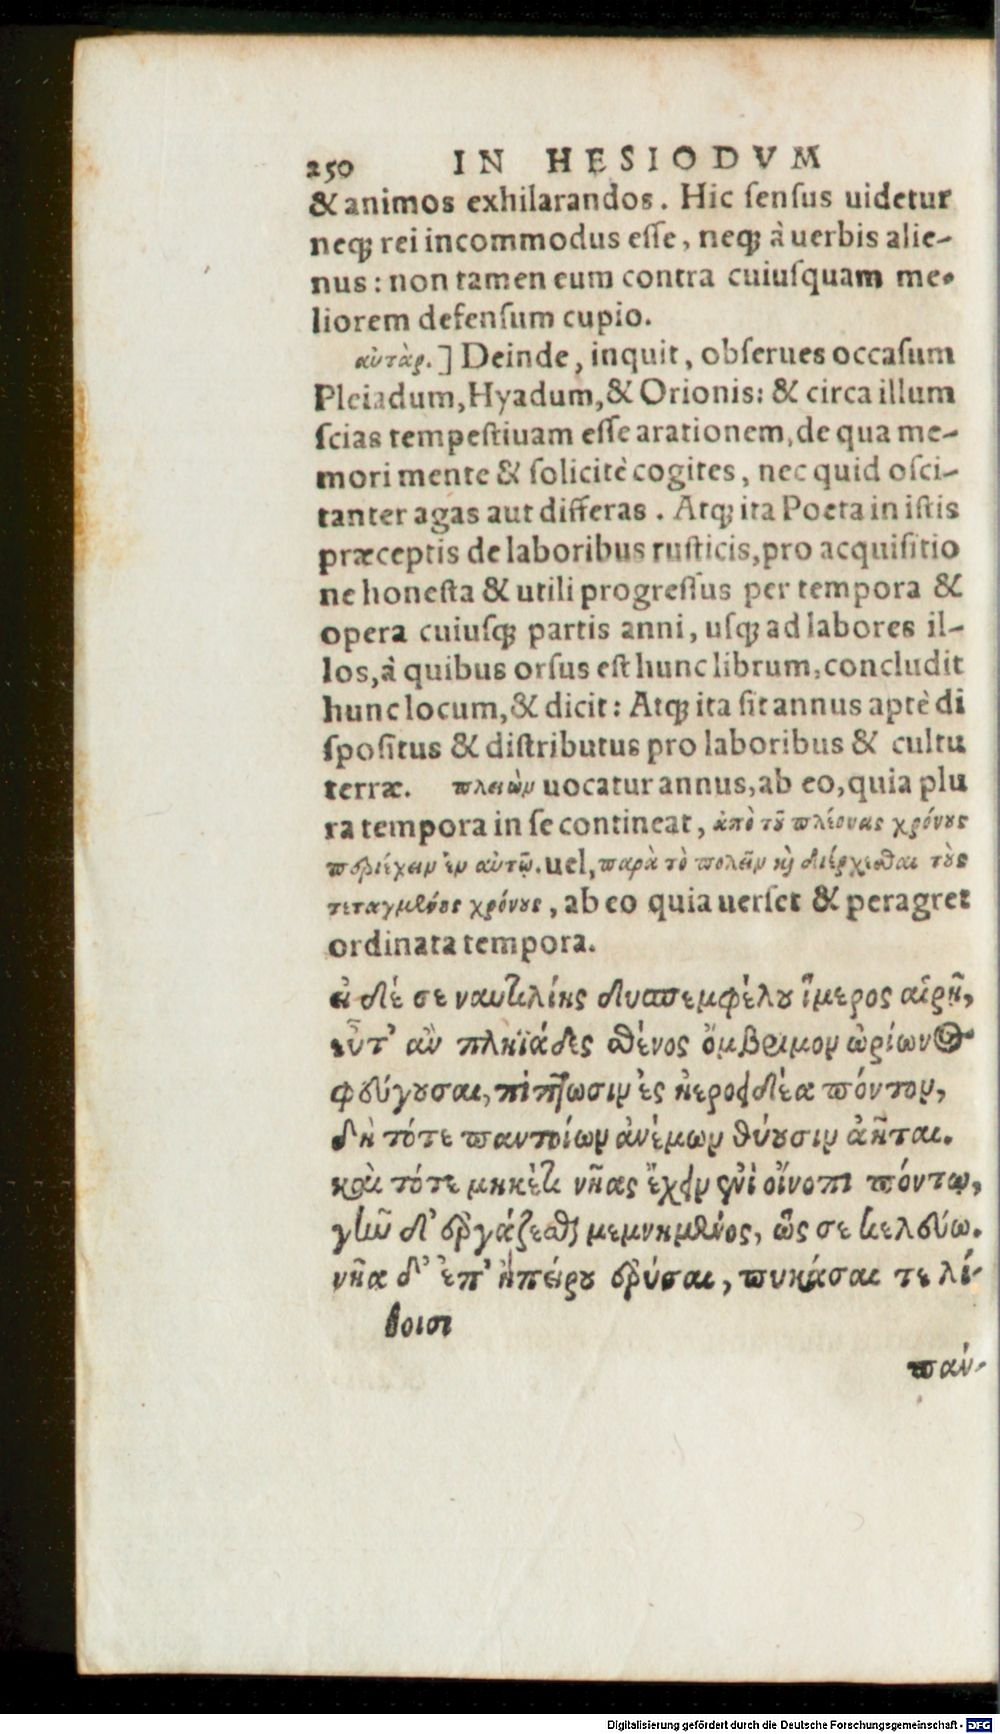 250 IN HESIODVM
& animos exhilarandos. Hic ſenſus uidetur
neqꝫ rei incommodus eſſe, neqꝫ à uerbis alie-
nus: non tamen eum contra cuiuſquam me-
liorem defenſum cupio.
αὐτὰρ.] Deinde, inquit, obſerues occaſum
Pleiadum, Hyadum, & Orionis: & circa illum
ſcias tempeſtiuam eſſe arationem, de qua me-
mori mente & ſolicitè cogites, nec quid oſci-
tanter agas aut differas. Atqꝫ ita Poeta in iſtis
præceptis de laboribus ruſticis, pro acquiſitio
ne honeſta & utili progreſſus per tempora &
opera cuiuſqꝫ partis anni, uſqꝫ ad labores il-
los, à quibus orſus eſt hunc librum, concludit
hunc locum, & dicit: Atqꝫ ita ſit annus aptè di
ſpoſitus & diſtributus pro laboribus & cultu
terræ. πλειὼν uocatur annus, ab eo, quia plu
ra tempora in ſe contineat, ἀπὸ τοῦ πλέονας χρόνους
περιέχειν ἐν αὐτῷ. uel, παρὰ τὸ πολεῖν καὶ διέρχεσθαι τοὺς
τεταγμένους χρόνους, ab eo quia uerſet & peragret
ordinata tempora.
εἰ δέ σε ναυτιλίης δυσπεμφέλου ἵμερος αἱρῇ,
εὖτ' ἂν πληϊάδες σθένος ὄμβριμον ὠρίωνος
φεύγουσαι, πίπτωσιν ἐς ἠεροειδέα πόντον,
δὴ τότε παντοίων ἀνέμων θύουσιν ἀῆται.
καὶ τότε μηκέτι νῆας ἔχειν ἐνὶ οἴνοπι πόντῳ,
γῆν δ' ἐργάζεσθαι μεμνημένος, ὥς σε κελεύω.
νῆα δ' ἐπ' ἠπείρου ἐρύσαι, πυκάσαι τε λί-
θοισι
παν-
Digitalisierung gefördert durch die Deutsche Forschungsgemeinschaft - DFG